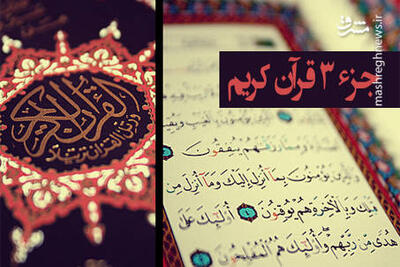 مشرق
mashreghnews.ir
جزء ۳ قرآن کریم
القرآن الكريم
ورتل القرآن ترتيلا
وَمِمَّا رَزَقْنَهُمْ يُنفِقُونَ
يُؤْمِنُونَ بِمَا أُنزِلَ إِلَيْكَ وَمَا أُنزِلَ مِن
قَبْلِكَ وَبِالْآخِرَةِ هُمْ يُوقِنُونَ أُوْلَٰئِكَ عَلَىٰ
هُدًى مِّن رَّبِّهِمْ وَأُوْلَٰئِكَ هُمُ الْمُفْلِحُونَ